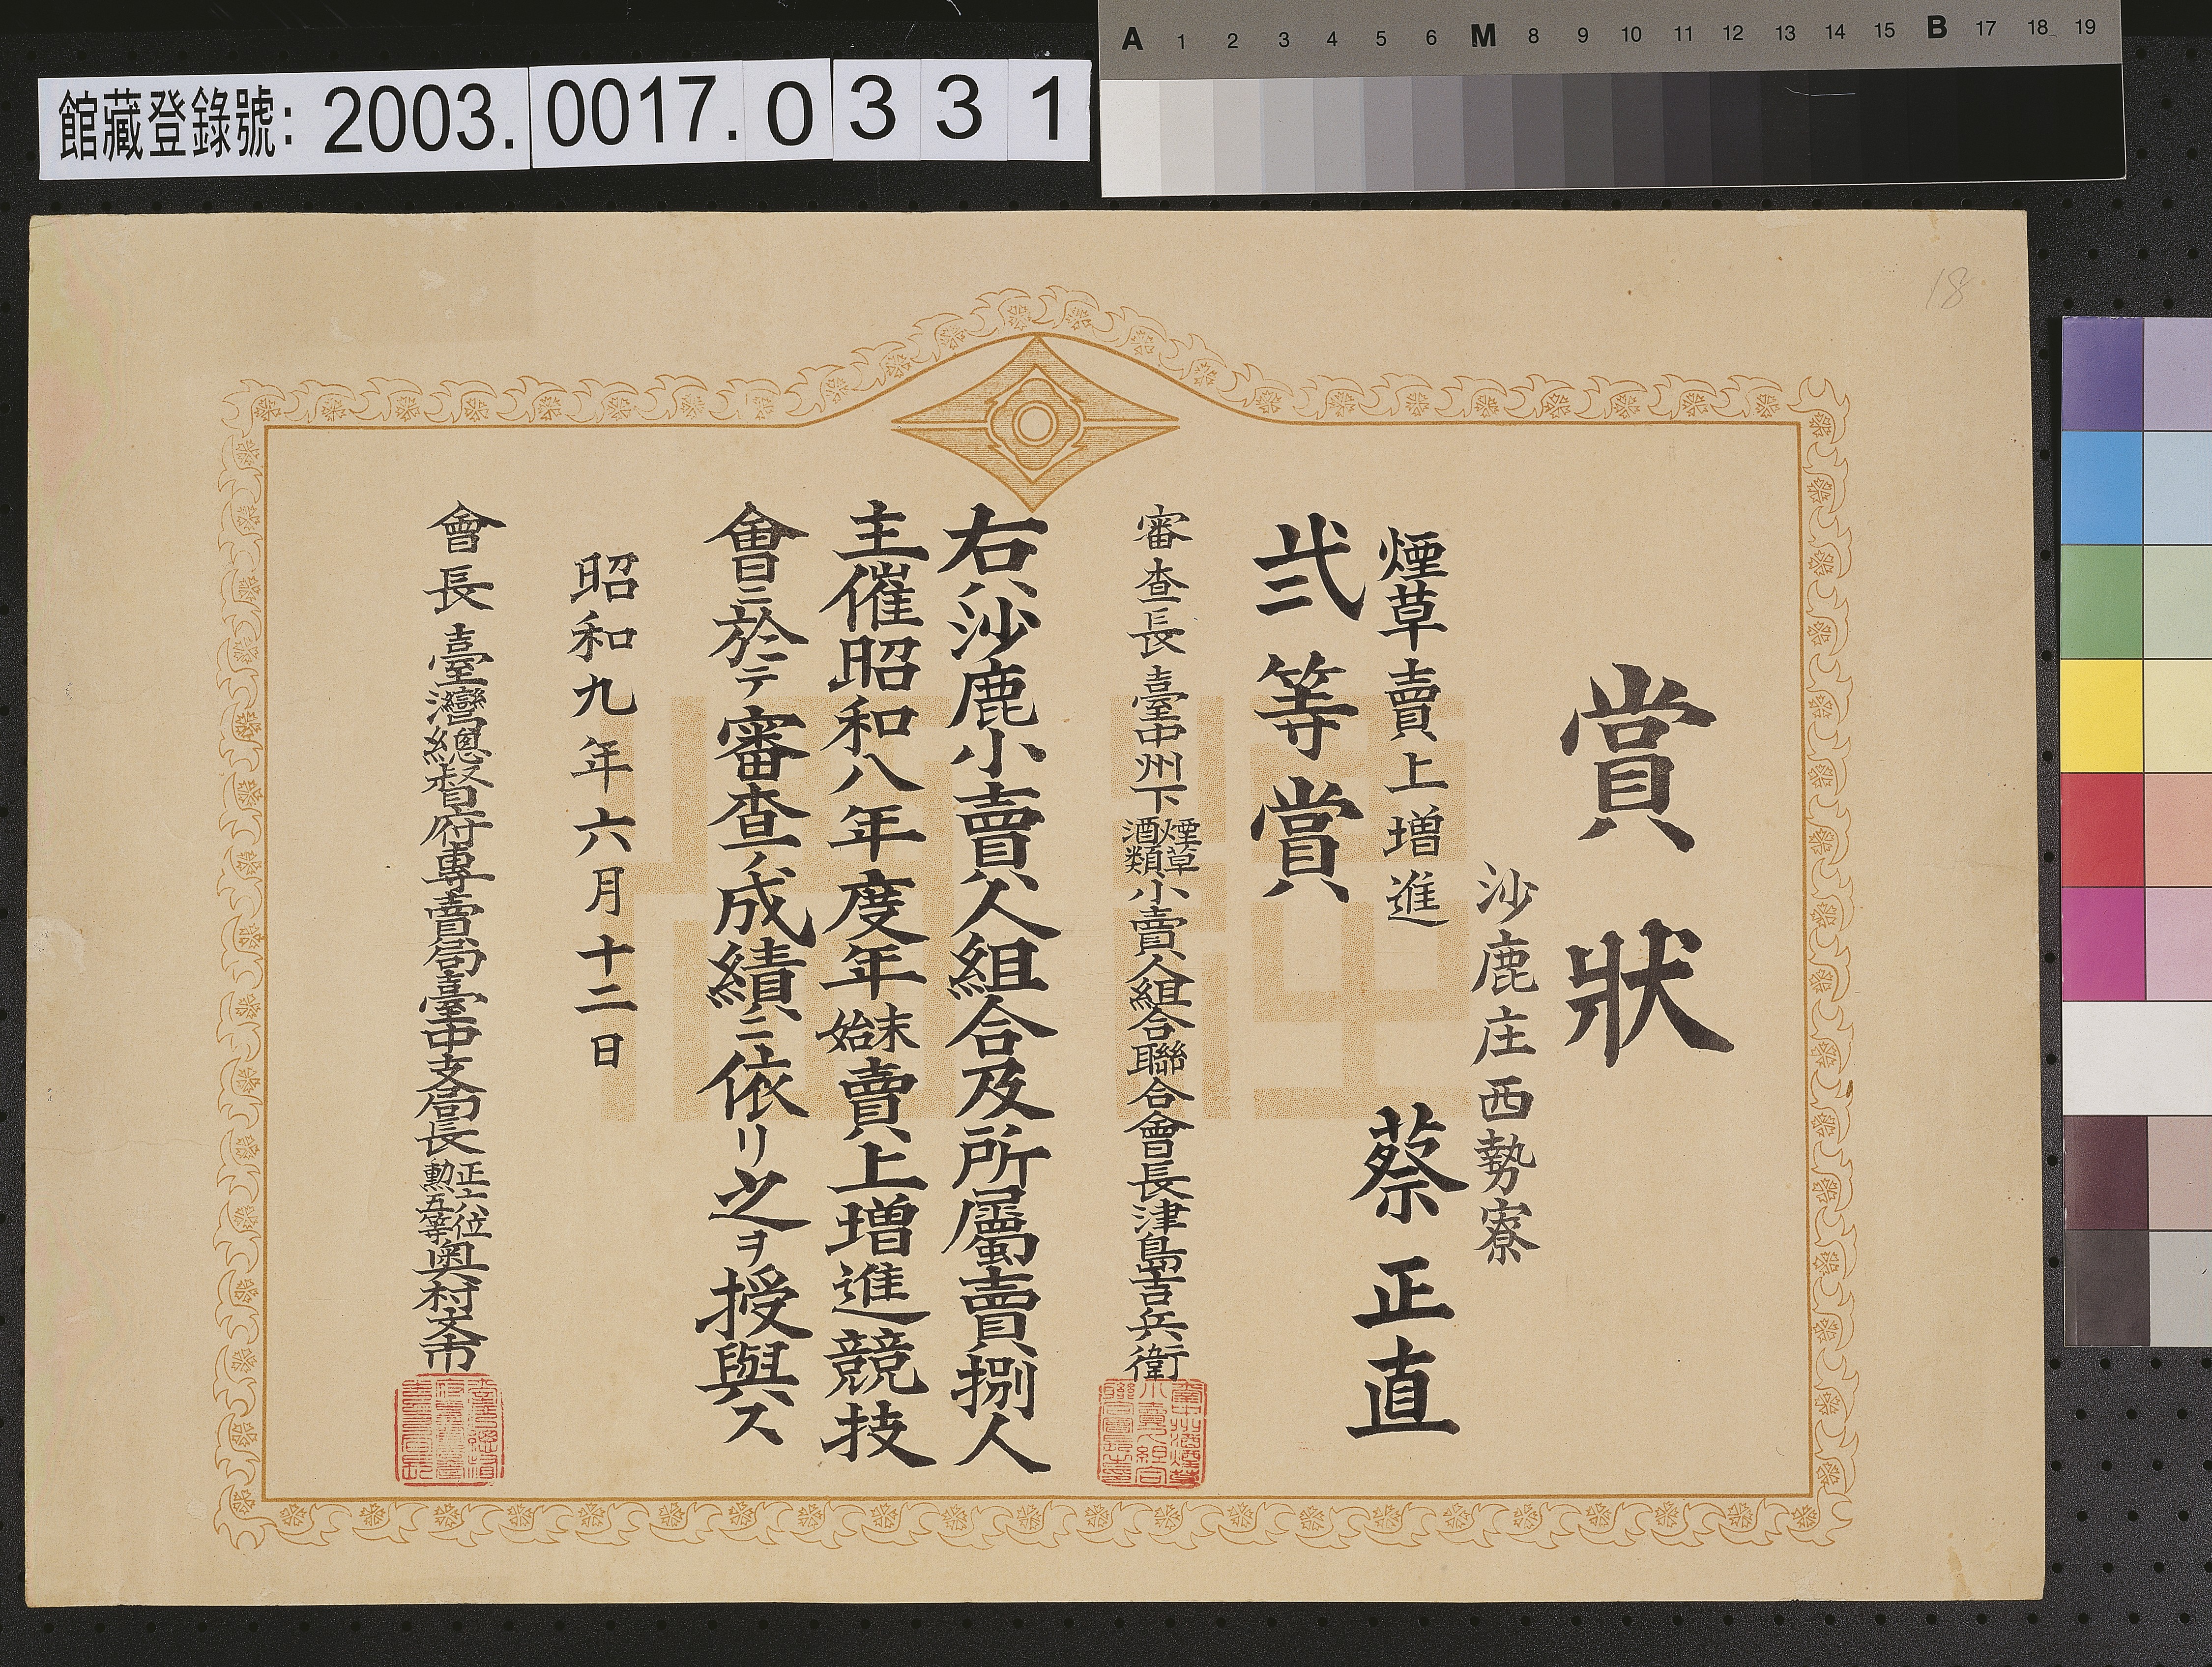 館藏登錄號: 2003.0017.0331
A 1 2 3 4 5 6 M 8 9 10 11 12 13 14 15 B 17 18 19
18
賞狀
沙鹿庄西勢寮
蔡正直
煙草賣上增進
弍等賞
審查長臺中州下煙草酒類小賣人組合聯合會長津島吉兵衛
右ハ沙鹿小賣人組合及所屬賣捌人
主催昭和八年度年末年始賣上增進競技
會ニ於テ審查ノ成績ニ依リ之ヲ授與ス
昭和九年六月十二日
會長臺灣總督府專賣局臺中支局長正六位勳五等奧村文市